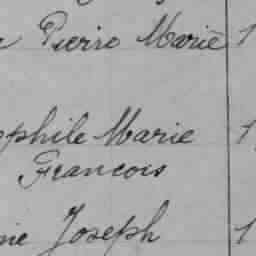 Pierre Marie 1
ophile Marie 1
Francois
ne Joseph 1